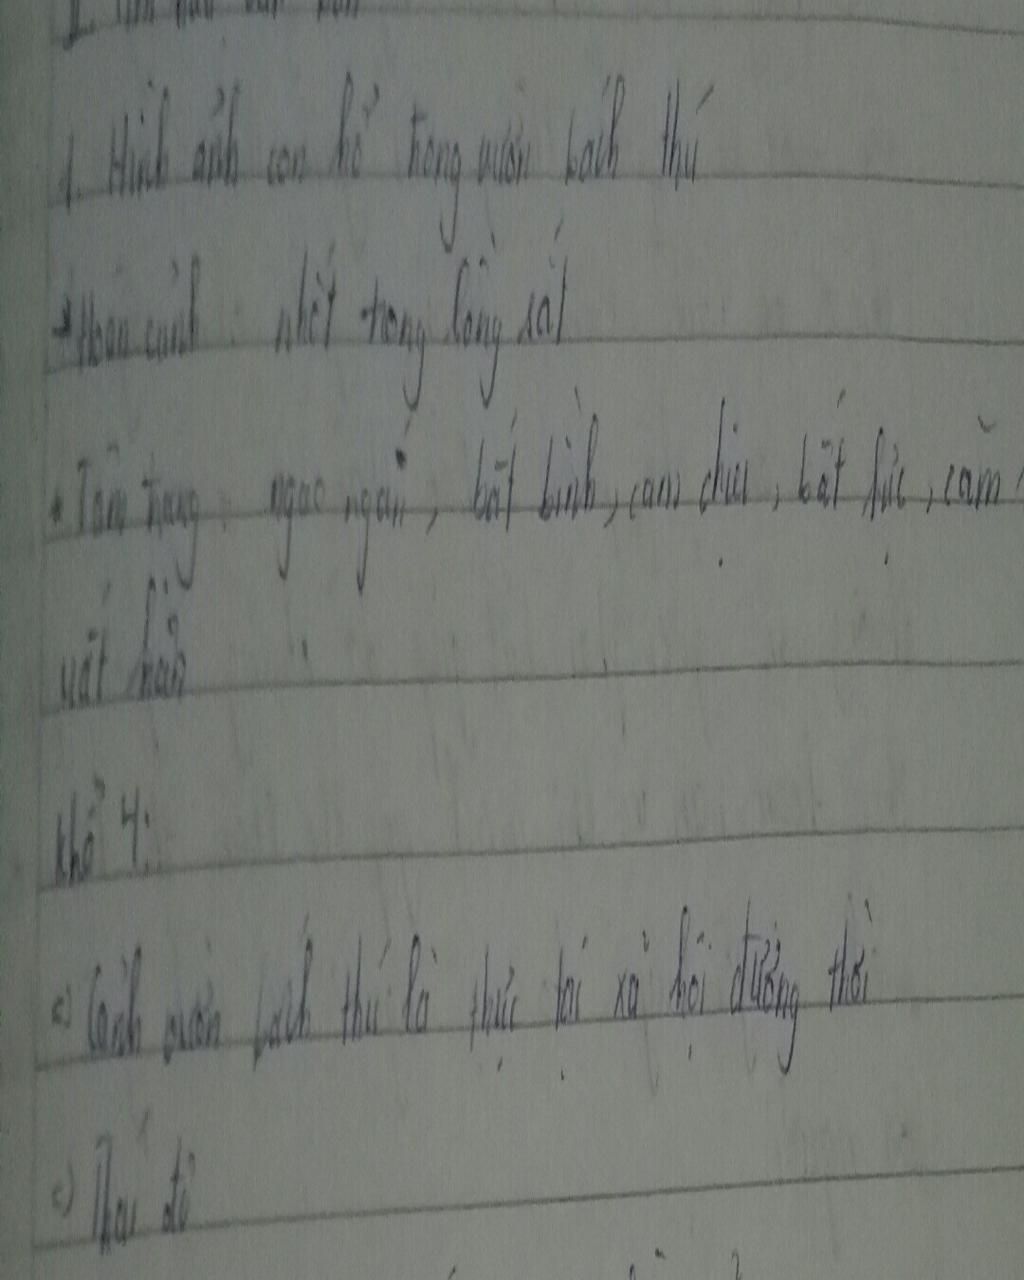 1. Hình ảnh con hổ trong vườn bách thú
* Hoàn cảnh: nhốt trong lồng sắt
* Tâm trạng: ngao ngán, bất bình, cam chịu, bất lực, căm
uất hận
Khổ 4:
=) Cảnh vườn bách thú là thực tại xã hội đương thời
=) Thái độ